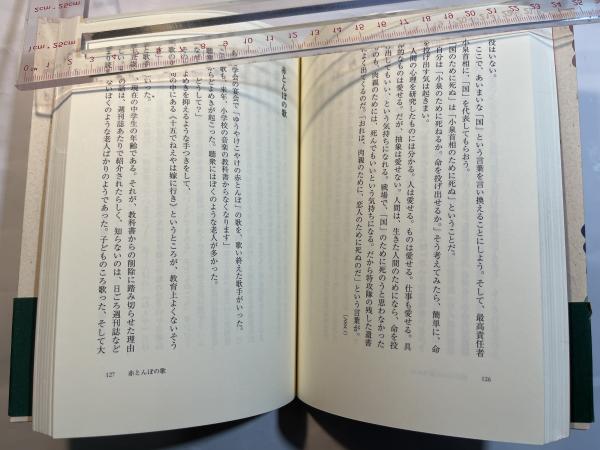 役はいない。
ここで、あいまいな「国」という言葉を言い換えることにしよう。そして、最高責任者
小泉首相に、「国」を代表してもらおう。
国のために死ぬ」は「小泉首相のために死ぬ」ということだ。
自分は「小泉のために死ねるか。命を投げ出せるか。」そう考えてみたら、簡単に、命
を投げ出す気は起きまい。
人間の心理を研究したものには分かる。人は愛せる。ものは愛せる。仕事も愛せる。具
的なものは愛せる。だが、抽象は愛せない。人間は、生きた人間のためになら、命を投
出してもいい、という気持ちになれる。戦場で、「国」のために死のうと思わなかった
のも、肉親のためには、死んでもいいという気持ちになる。だから特攻隊の残した遺書
よく出てくるのだ。「おれは、肉親のために、恋人のために死ぬのだ」という言葉が。
126
赤とんぼの歌
会の宴会で「ゆうやけこやけの赤とんぼ」の歌を、歌い終えた歌手がいった。
歌も、来年、小学校の音楽の教科書からなくなります」
聴衆にどよめきが起こった。聴衆にはぼくのような老人が多かった。
どうして？」
よめきを抑えるような手つきをして、
歌の中にある〈十五でねえやは嫁に行き〉というところが、教育上よくないそう
と歌手はいった。
現在の中学生の年齢である。それが、教科書からの削除に踏み切らせた理由
の話は、週刊誌あたりで紹介されたらしく、知らないのは、日ごろ週刊誌など
ぼくのような老人ばかりのようであった。子どものころ歌った、そして大
127 赤とんぼの歌